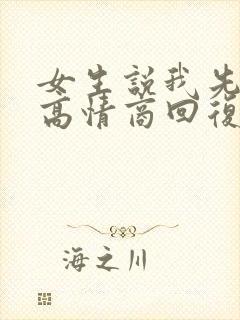 女生説我先
高情商回復
海之川